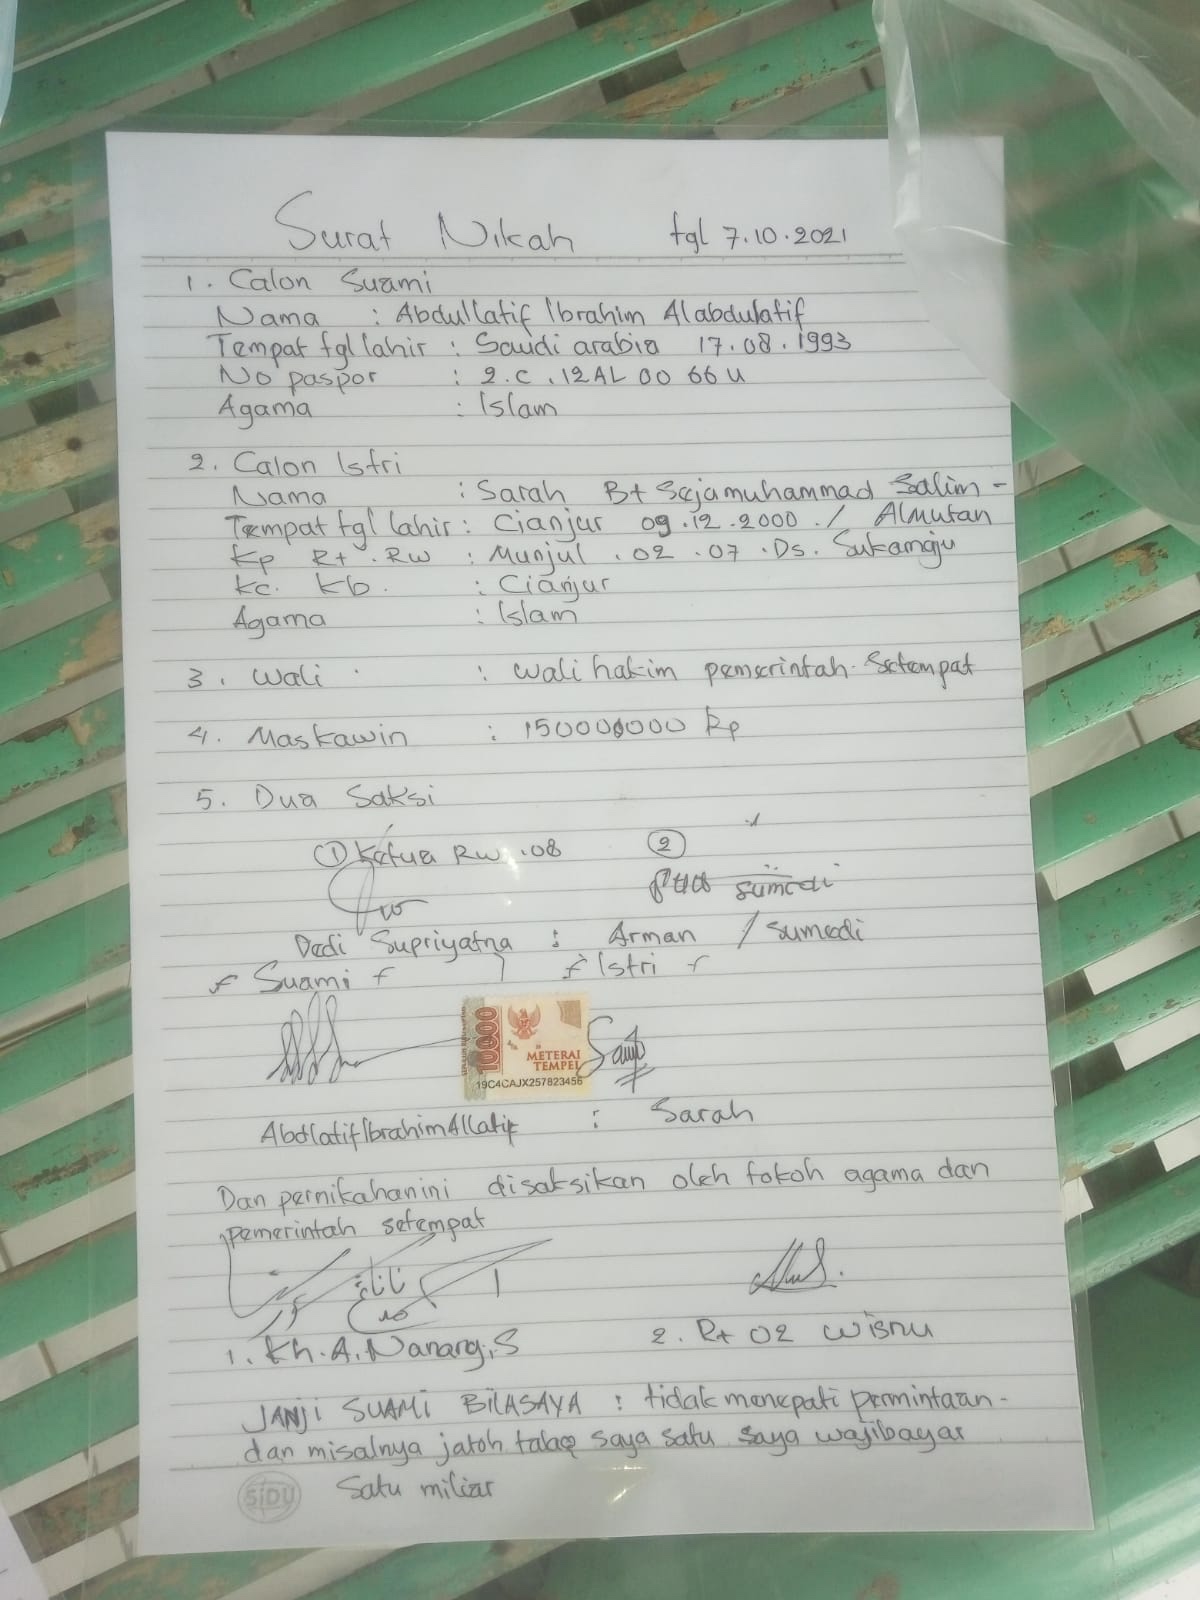 Surat Nikah tgl 7.10.2021
1. Calon Suami
Nama : Abdullatif Ibrahim Alabdulatif
Tempat tgl lahir : Saudi arabia 17.08.1993
No paspor : 2.C.12AL 00 66 U
Agama : Islam
2. Calon Istri
Nama : Sarah Bt Sejamuhammad Salim -
Tempat tgl lahir : Cianjur 09.12.2000 ./ Almutan
Kp Rt . RW : Munjul .02 .07 .Ds. Sukamaju
Kc. Kb. : Cianjur
Agama : Islam
3. Wali : Wali hakim pemerintah setempat
4. Maskawin : 150000000 Rp
5. Dua Saksi
① Ketua RW .08 ②
sumedi
Dedi Supriyatna : Arman / Sumedi
Suami Istri
10000
METERAI
TEMPEL
19C4CAJX257823456
Abdlatif Ibrahim Allatif : Sarah
Dan pernikahan ini disaksikan oleh tokoh agama dan
pemerintah setempat
1. Kh. A. Nanang, S 2. Rt 02 Wisnu
JANJI SUAMI BILA SAYA : tidak menepati permintaan -
dan misalnya jatoh talaq saya satu saya wajib bayar
SiDU Satu miliar